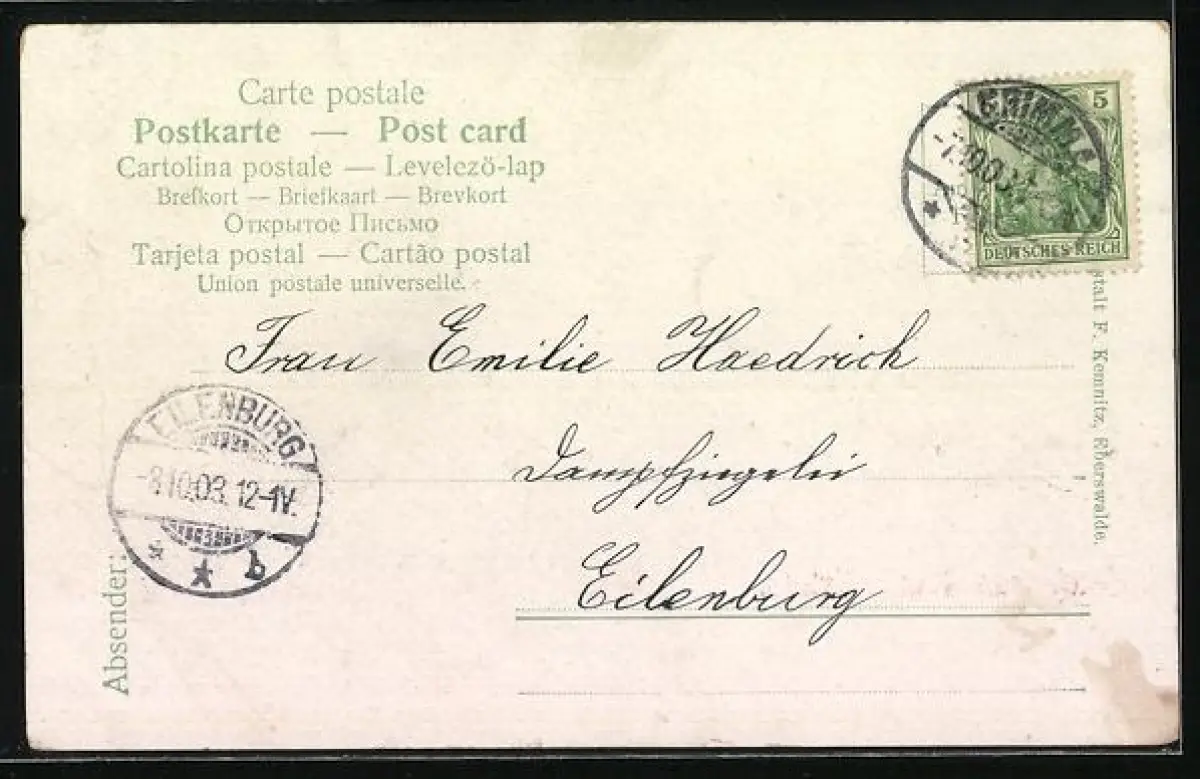 Carte postale
Postkarte — Post card
Cartolina postale — Levelező-lap
Brefkort — Briefkaart — Brevkort
Открытое Письмо
Tarjeta postal — Cartão postal
Union postale universelle.
GRIMMA
-7.10.03.
5
DEUTSCHES REICH
Frau Emilie Haedrich
Dampfziegelei
Eilenburg
EILENBURG
-8.10.03. 12-1V.
* * b
Absender:
stalt F. Kemnitz, Eberswalde.